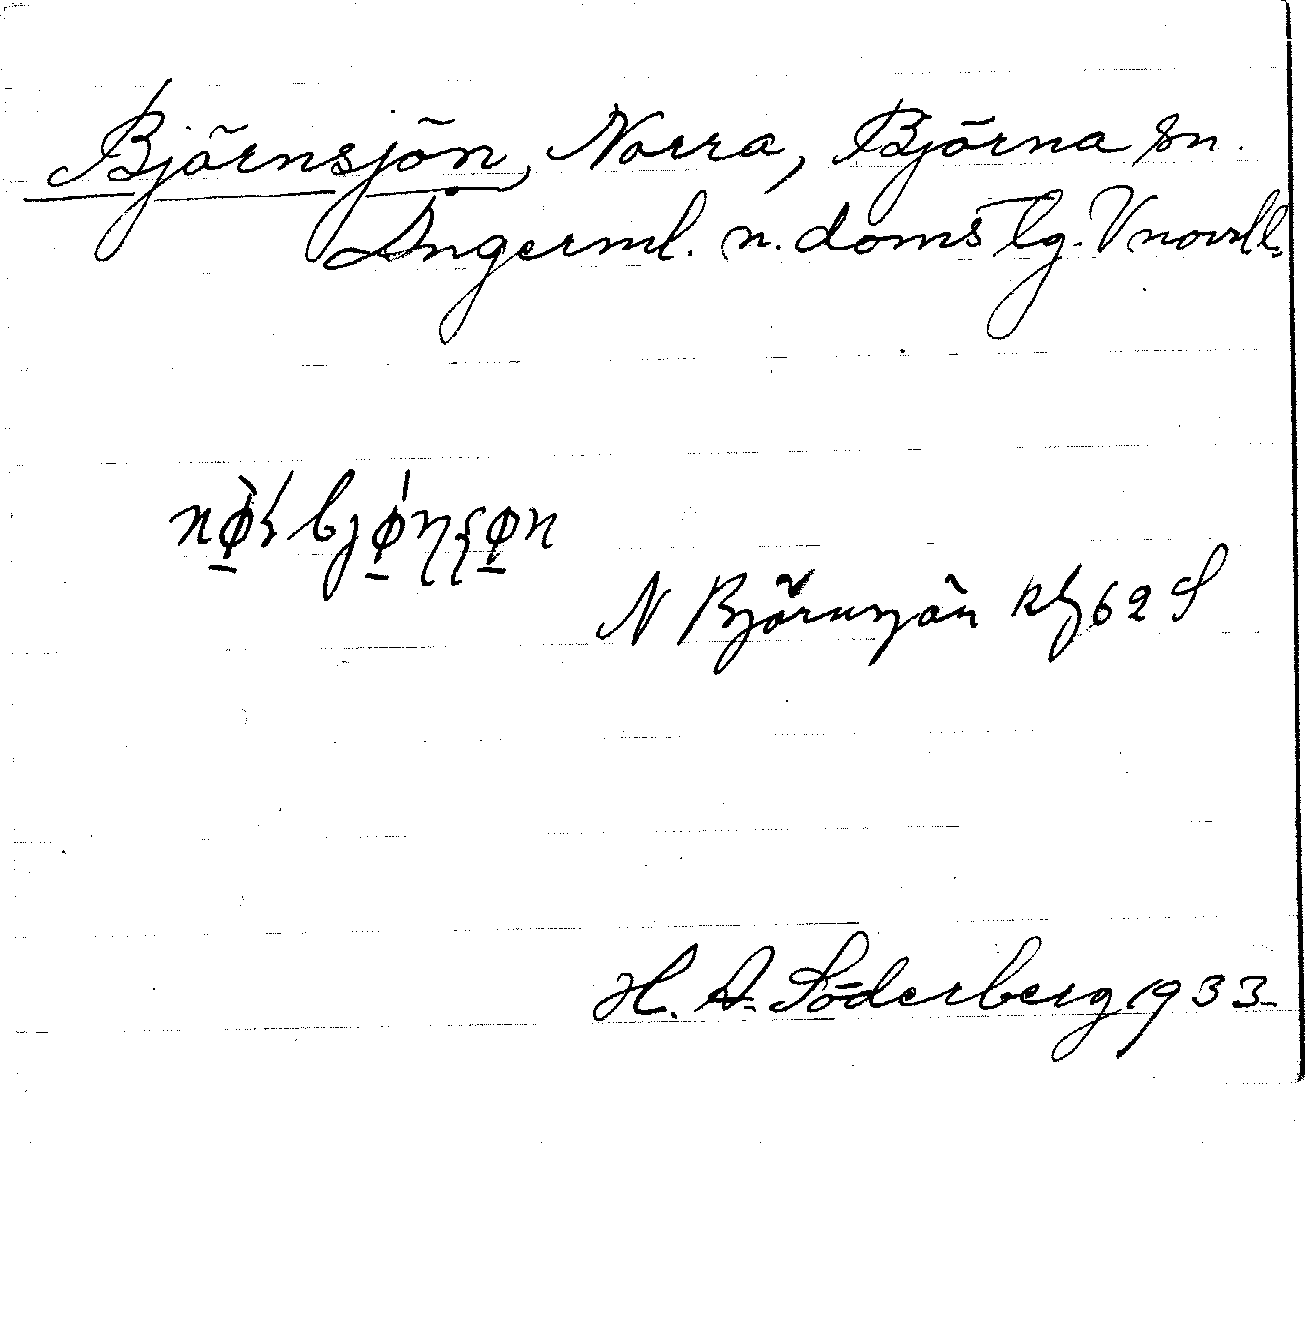 Björnsjön, Norra, Björna sn.
Ångerml. n. doms lg. Vnorrll.
N Björnsjön kbl 62 S
H. A. Söderberg 1933